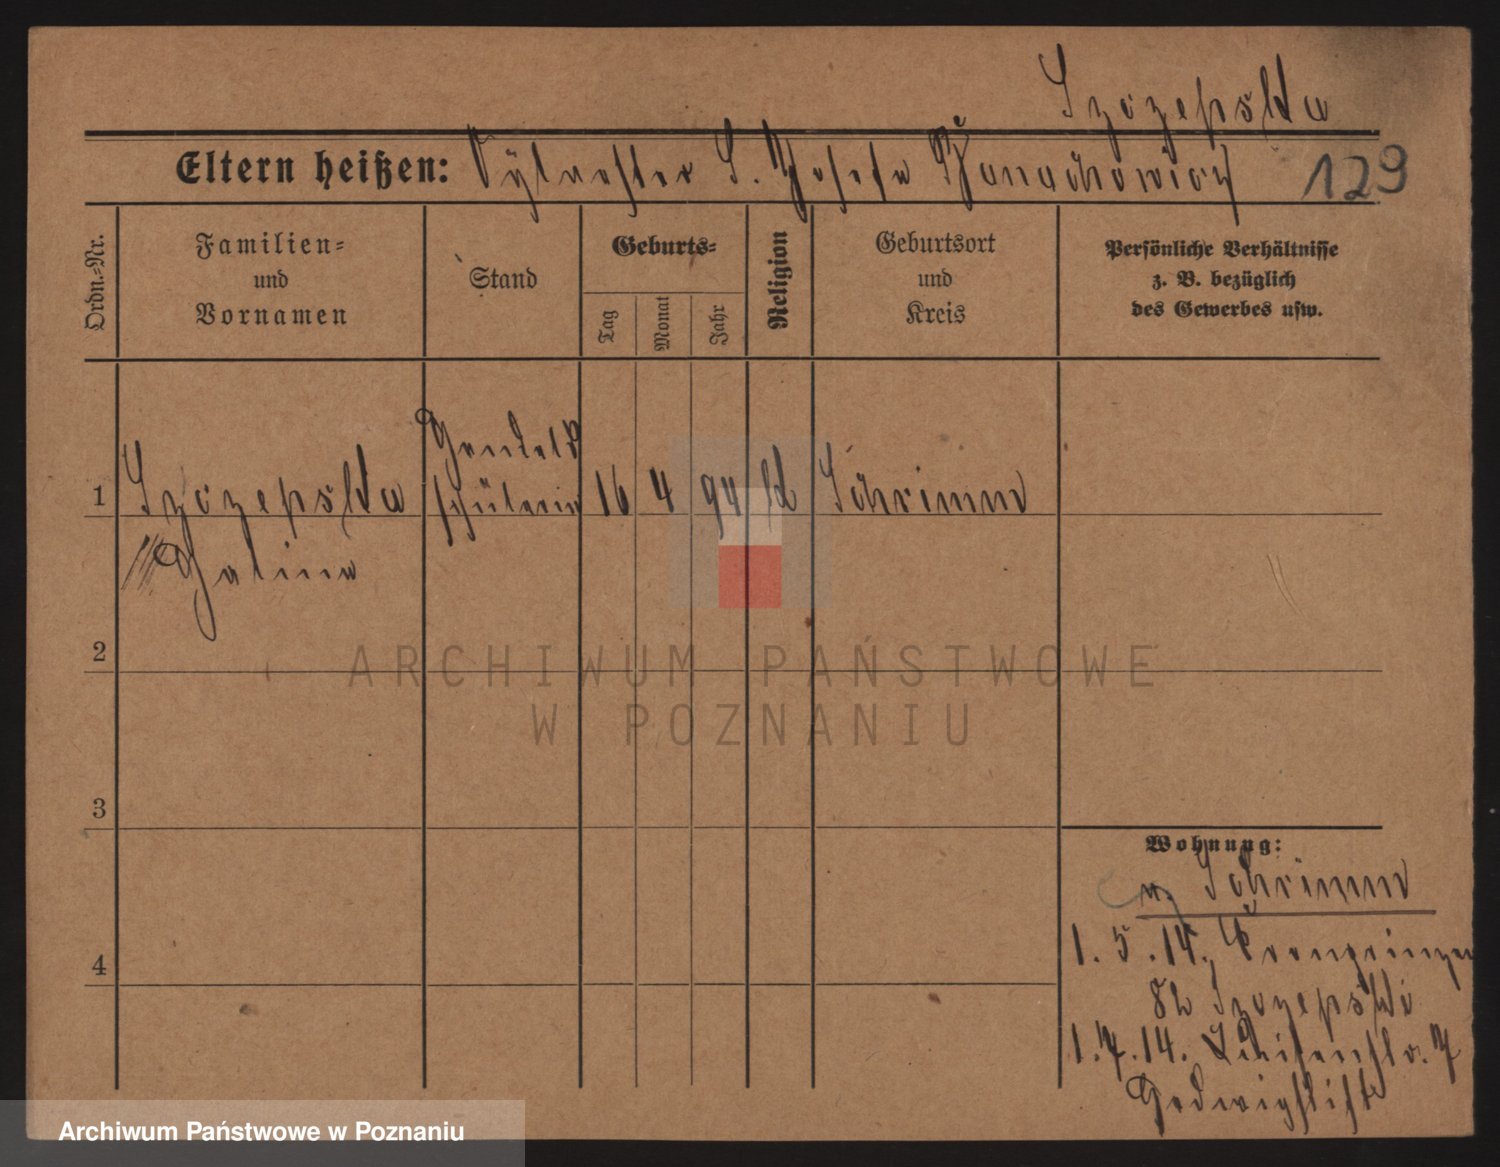 Szczepska
Eltern heißen: Sylvester S. Josefa
129
Ordn.-Nr.
Familien-
und
Vornamen
Stand
Geburts-
Tag
Monat
Jahr
Religion
Geburtsort
und
Kreis
Persönliche Verhältnisse
z. B. bezüglich
des Gewerbes usw.
Handels
1 Szczepska schülerin 16 4 94 k Schrimm
Halina
2
3
4
ARCHIWUM PAŃSTWOWE
W POZNANIU
Wohnung:
v. Schrimm
1. 5. 14. Kronprinzen
82 Szczepski
1. 7. 14. Luisenstr. 7
Hedwigstift
Archiwum Państwowe w Poznaniu